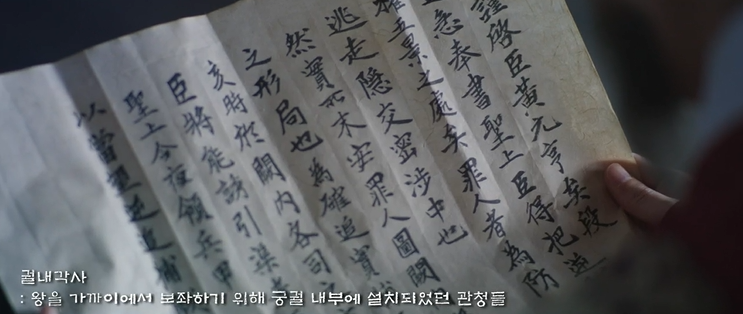 謹啓臣黃元亨矣段
急奉書聖上臣得把逆
五景之處矣罪人者為防
逃走隱交密涉中也
然實所未安罪人圖闕
之形局也為確追實
亥時於闕內各司
臣將能誘引梁
聖上今夜領兵甲
以當望逆追捕
궐내각사
: 왕을 가까이에서 보좌하기 위해 궁궐 내부에 설치되었던 관청들